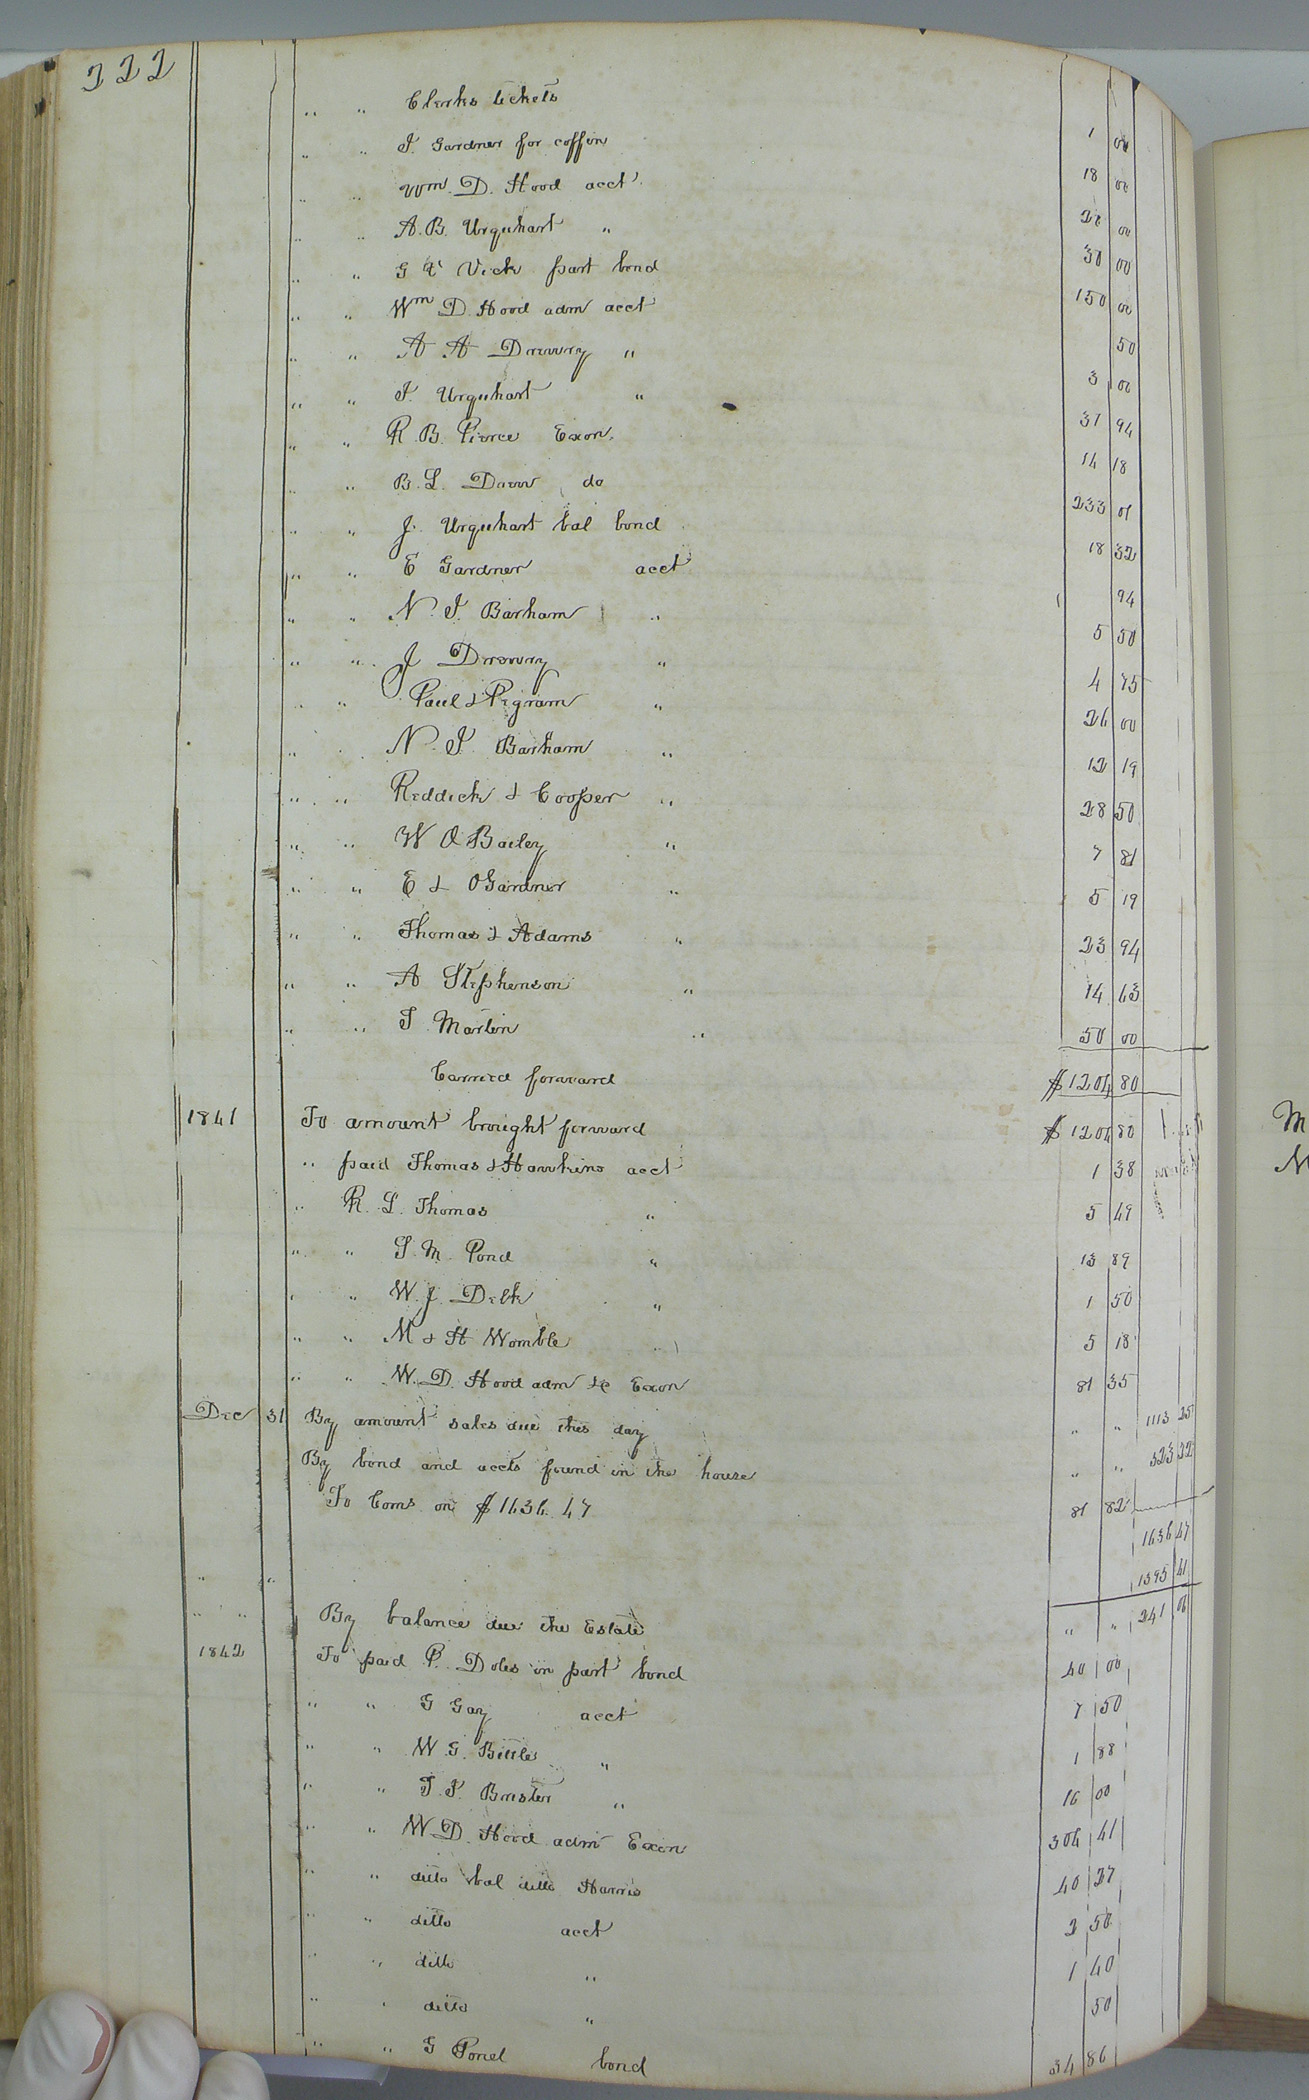 222
" " Clerks tickets 1 00
" " J. Gardner for coffin 18 00
" " Wm. D. Hood acct 00
" " A. B. Urquhart " 30 00
" " Vick part bond 150 00
" " Wm D. Hood adm acct 50
" " A A Drewry " 3 00
" " J. Urquhart " 31 94
" " R. B. Pierce Exon. 14 18
" " B. L. Drew do 233 01
" " J. Urquhart bal bond 18 32
" " E Gardner acct 94
" " N. J. Barham " 5 50
" " J Drewry " 4 75
" " Paul & Pegram " 26 00
" " N. J. Barham " 12 19
" " Reddick & Cooper " 28 50
" " W O Bailey " 7 81
" " E & O Gardner " 5 19
" " Thomas & Adams " 23 94
" " A Stephenson " 14 63
" " T. Martin " 50 00
Carried forward $1204 80
1841 To amount brought forward $1204 80
" paid Thomas & Hawkins acct 1 38
" R. L. Thomas " 5 49
" " S. M. Pond " 13 89
" " W. J. Delk " 1 50
" " M & H Womble " 5 18
" " W. D. Hood adm &c Exon 81 35
Dec 31 By amount sales due this day " " 1113 25
By bond and accts found in the house " " 523 22
To Coms on $1636.47 81 82
1636 47
" " 1395 41
" " By balance due the Estate " " 241 06
1842 To paid P. Doles in part bond 40 00
" " G Gay acct 7 50
" " W. G. Bittle " 1 88
" " Brister " 16 00
" " W. D. Hood adm Exon 304 41
" " ditto bal ditto Harris 40 27
" " ditto acct 2 50
" " ditto " 1 40
" " ditto " 50
" " G Pond bond 34 86